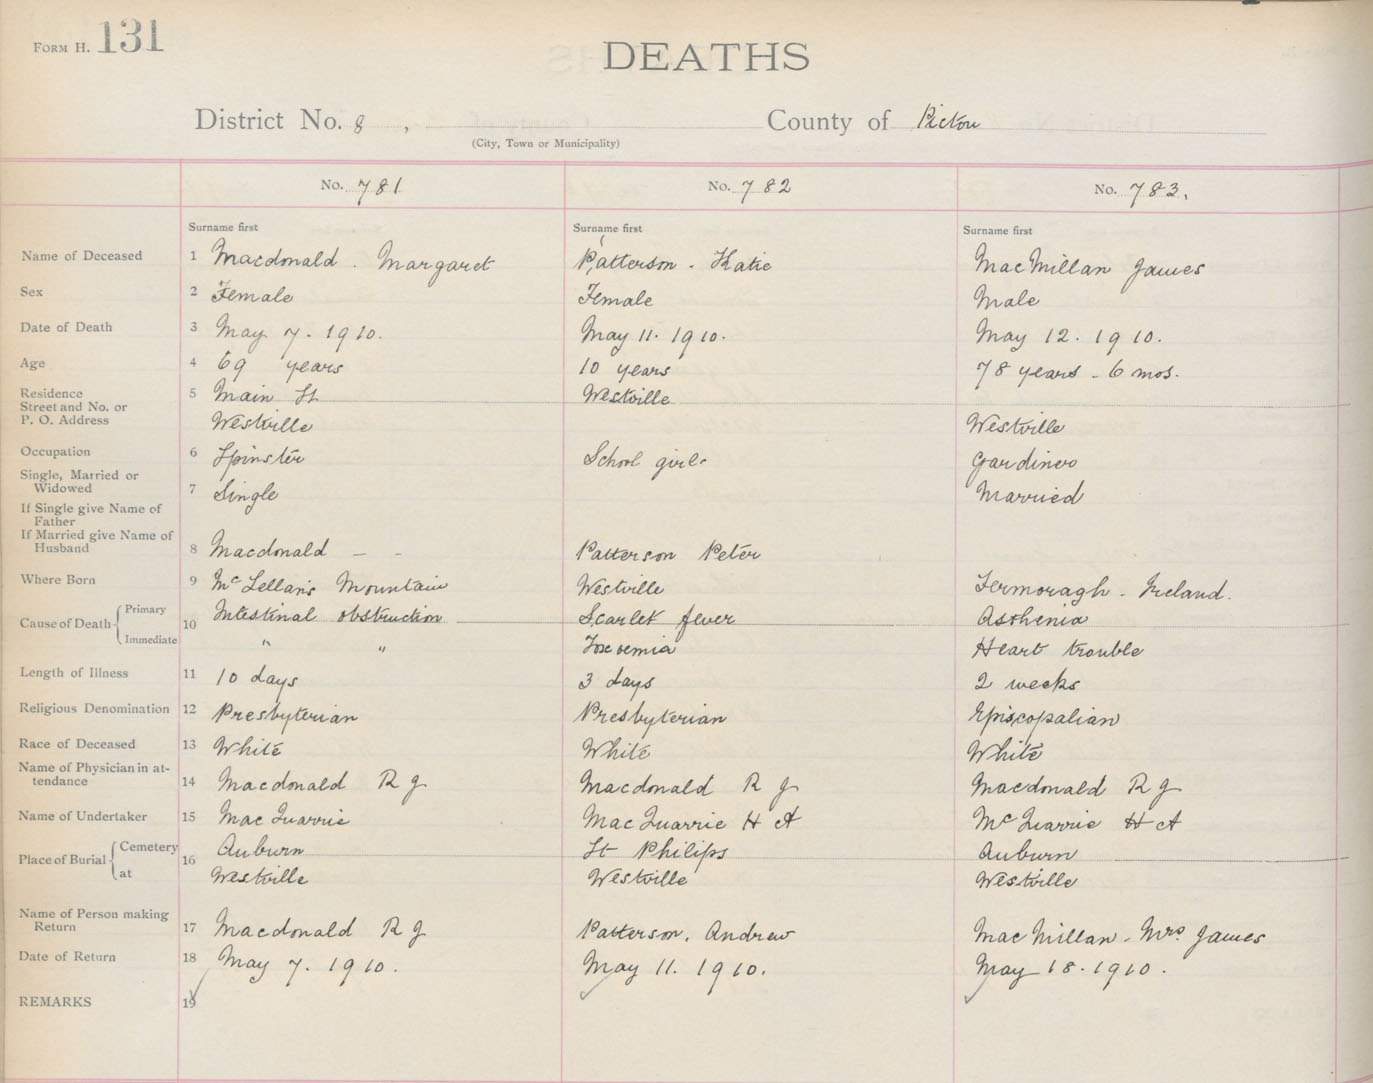 FORM H. 131
DEATHS
District No. 8 , County of Pictou
(City, Town or Municipality)
No. 781 No. 782 No. 783.
Surname first Surname first Surname first
Name of Deceased 1 Macdonald. Margaret Patterson. Katie MacMillan James
Sex 2 Female Female Male
Date of Death 3 May 7. 1910. May 11. 1910. May 12. 1910.
Age 4 69 years 10 years 78 years - 6 mos.
Residence 5 Main St Westville
Street and No. or
P. O. Address Westville Westville
Occupation 6 Spinster School girl. Gardiner
Single, Married or
Widowed 7 Single Married
If Single give Name of
Father
If Married give Name of
Husband 8 Macdonald — - Patterson Peter
Where Born 9 McLellans Mountain Westville Ireland.
Cause of Death Primary 10 Intestinal obstruction Scarlet fever Asthenia
Immediate " " Toxoemia Heart trouble
Length of Illness 11 10 days 3 days 2 weeks
Religious Denomination 12 Presbyterian Presbyterian Episcopalian
Race of Deceased 13 White White White
Name of Physician in at-
tendance 14 Macdonald R J Macdonald R J Macdonald R J
Name of Undertaker 15 MacQuarrie MacQuarrie H A McQuarrie H A
Place of Burial Cemetery 16 Auburn St Philips Auburn
at Westville Westville Westville
Name of Person making
Return 17 Macdonald R J Patterson, Andrew MacMillan. Mrs. James
Date of Return 18 May 7. 1910. May 11. 1910. May 18. 1910.
REMARKS 19